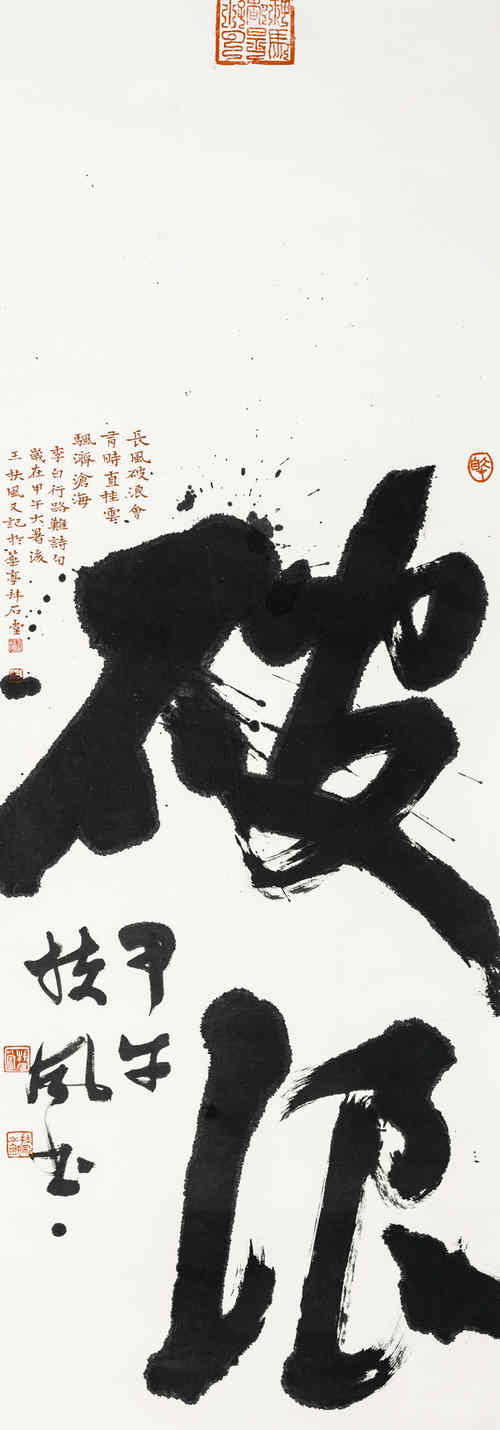 破浪
長風破浪會
有時直挂雲
颿濟滄海
李白行路難詩句
歲在甲午大暑後
王扶風又記於華亭拜石堂
甲午
扶風書